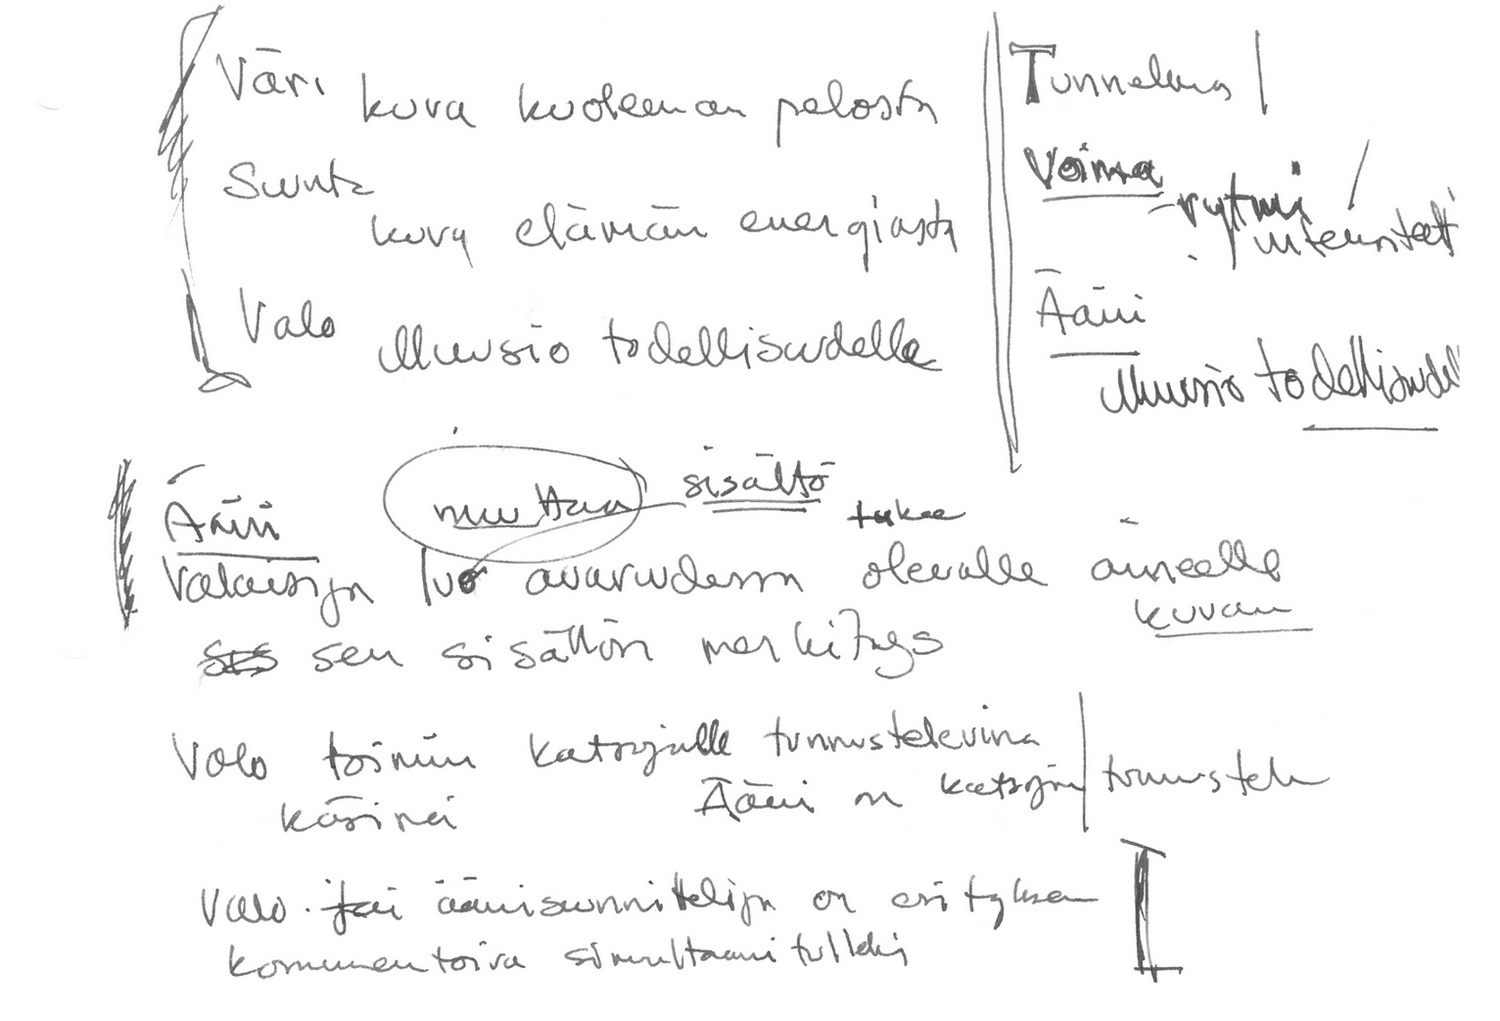 Väri kuva kuoleman pelosta
Suunta
kuva elämän energiasta
Valo illuusio todellisuudelle
Tunnelma
Voima
rytmi
intensiteet
Ääni
illuusio todellisuudel
Ääni muuttaa sisältö
tukee
Valaisija luo avaruudessa olevalle aineelle
kuvan
sen sisällön merkitys
Valo toimii katsojalle tunnustelevina
käsinä
Ääni on katsojan tunnustelu
Valo- tai äänisuunnittelija on esityksen
kommentoiva simultaanitulkki